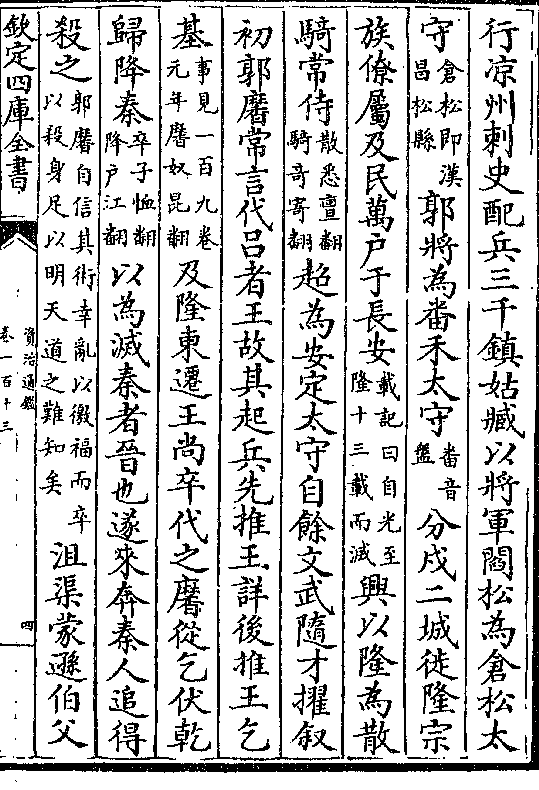 行凉州刺史配兵三千鎮姑臧以將軍閻松為倉松太
守倉松即漢昌松縣郭將為番禾太守番音盤分戍二城徙隆宗
族僚屬及民萬户于長安載記曰自光至隆十三載而滅興以隆為散
騎常侍散悉亶翻騎奇寄翻超為安定太守自餘文武隨才擢叙
初郭黁常言代吕者王故其起兵先推王詳後推王乞
基事見一百九卷元年黁奴昆翻及隆東遷王尚卒代之黁從乞伏乾
歸降秦卒子恤翻降户江翻以為滅秦者晉也遂來奔秦人追得
殺之郭黁自信其術幸亂以徼福而卒以殺身足以明天道之難知矣沮渠蒙遜伯父
欽定四庫全書
資治通鑑
卷一百十三
四